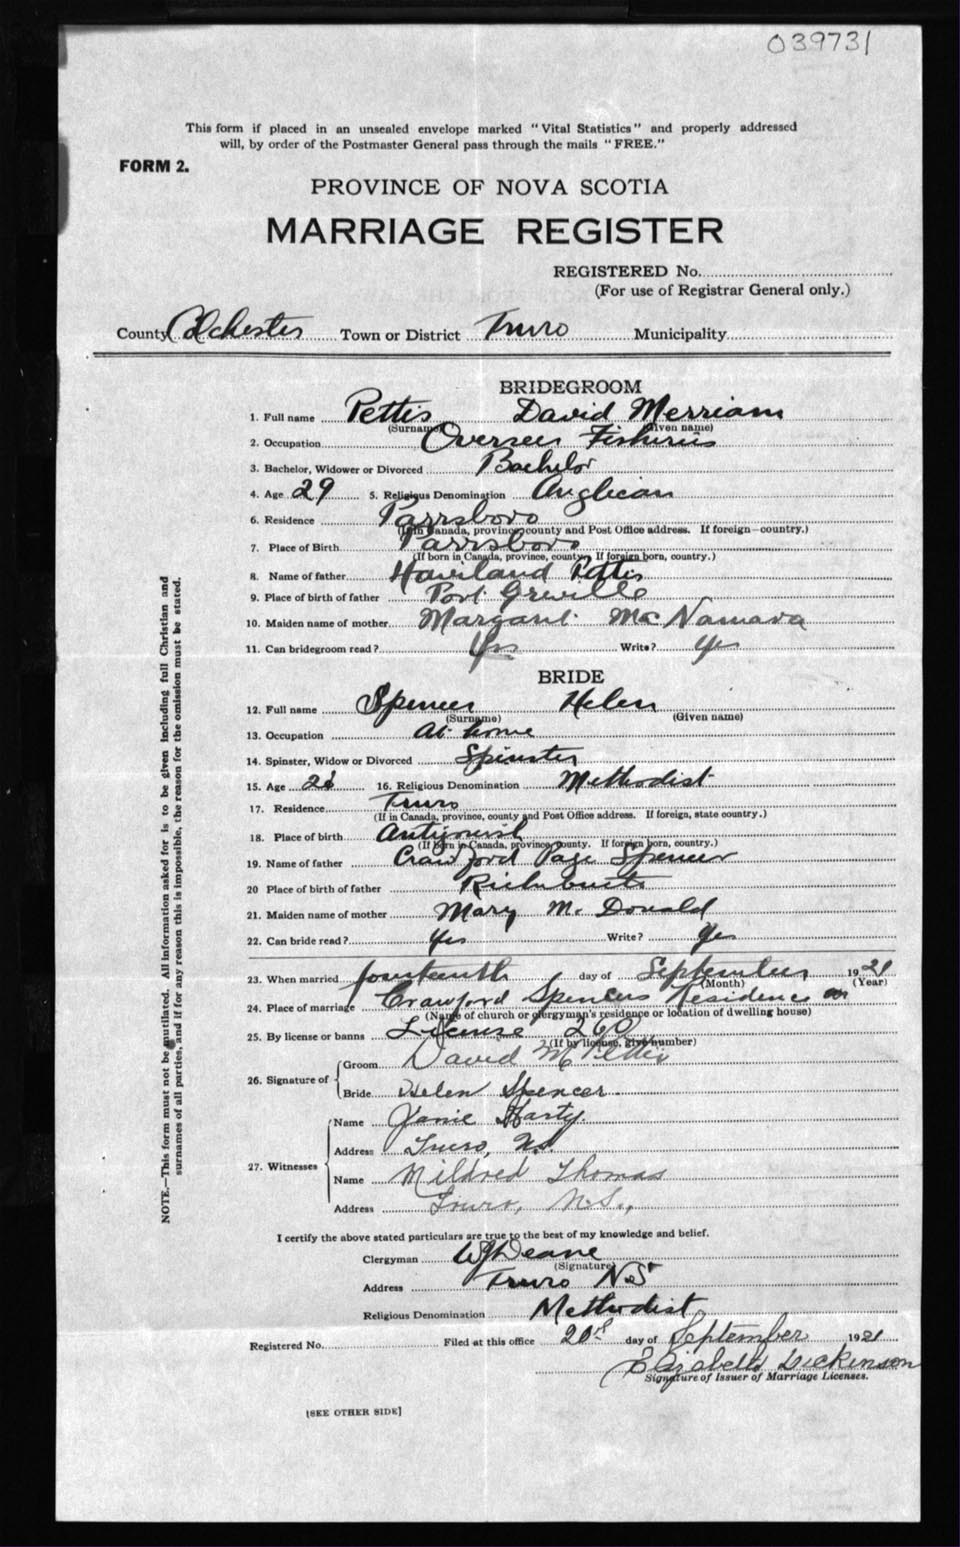 039731
This form if placed in an unsealed envelope marked "Vital Statistics" and properly addressed
will, by order of the Postmaster General pass through the mails "FREE."
FORM 2.
PROVINCE OF NOVA SCOTIA
MARRIAGE REGISTER
REGISTERED No.
(For use of Registrar General only.)
County Colchester Town or District Truro Municipality
BRIDEGROOM
1. Full name Pettis David Merriam
(Surname) (Given name)
2. Occupation Overseer Fisheries
3. Bachelor, Widower or Divorced Bachelor
4. Age 29 5. Religious Denomination Anglican
6. Residence Parrsboro
(If in Canada, province, county and Post Office address. If foreign—country.)
7. Place of Birth Parrsboro
(If born in Canada, province, county, If foreign born, country.)
8. Name of father Haviland Pettis
9. Place of birth of father Port Greville
10. Maiden name of mother Margaret McNamara
11. Can bridegroom read? Yes Write? Yes
BRIDE
12. Full name Spencer Helen
(Surname) (Given name)
13. Occupation At home
14. Spinster, Widow or Divorced Spinster
15. Age 16. Religious Denomination Methodist
17. Residence Truro
(If in Canada, province, county and Post Office address. If foreign, state country.)
18. Place of birth Antigonish
(If born in Canada, province, county. If foreign born, country.)
19. Name of father Crawford Page Spencer
20 Place of birth of father Richibucto
21. Maiden name of mother Mary McDonald
22. Can bride read? Yes Write? Yes
23. When married fourteenth day of September 1921
(Month) (Year)
24. Place of marriage Crawford Spencers Residence
(Name of church or clergyman's residence or location of dwelling house)
25. By license or banns License 260
(If by license, give number)
26. Signature of Groom David M Pettis
Bride Helen Spencer
27. Witnesses Name Janie Harty.
Address Truro, N.S.
Name Mildred Thomas
Address Truro, N.S.,
I certify the above stated particulars are true to the best of my knowledge and belief.
Clergyman WJ Deane
(Signature)
Address Truro NS
Religious Denomination Methodist
Registered No. Filed at this office 20th day of September 1921
Elizabeth Dickinson
Signature of Issuer of Marriage Licenses.
[SEE OTHER SIDE]
NOTE.—This form must not be mutilated. All information asked for is to be given including full Christian and
surnames of all parties, and if for any reason this is impossible, the reason for the omission must be stated.